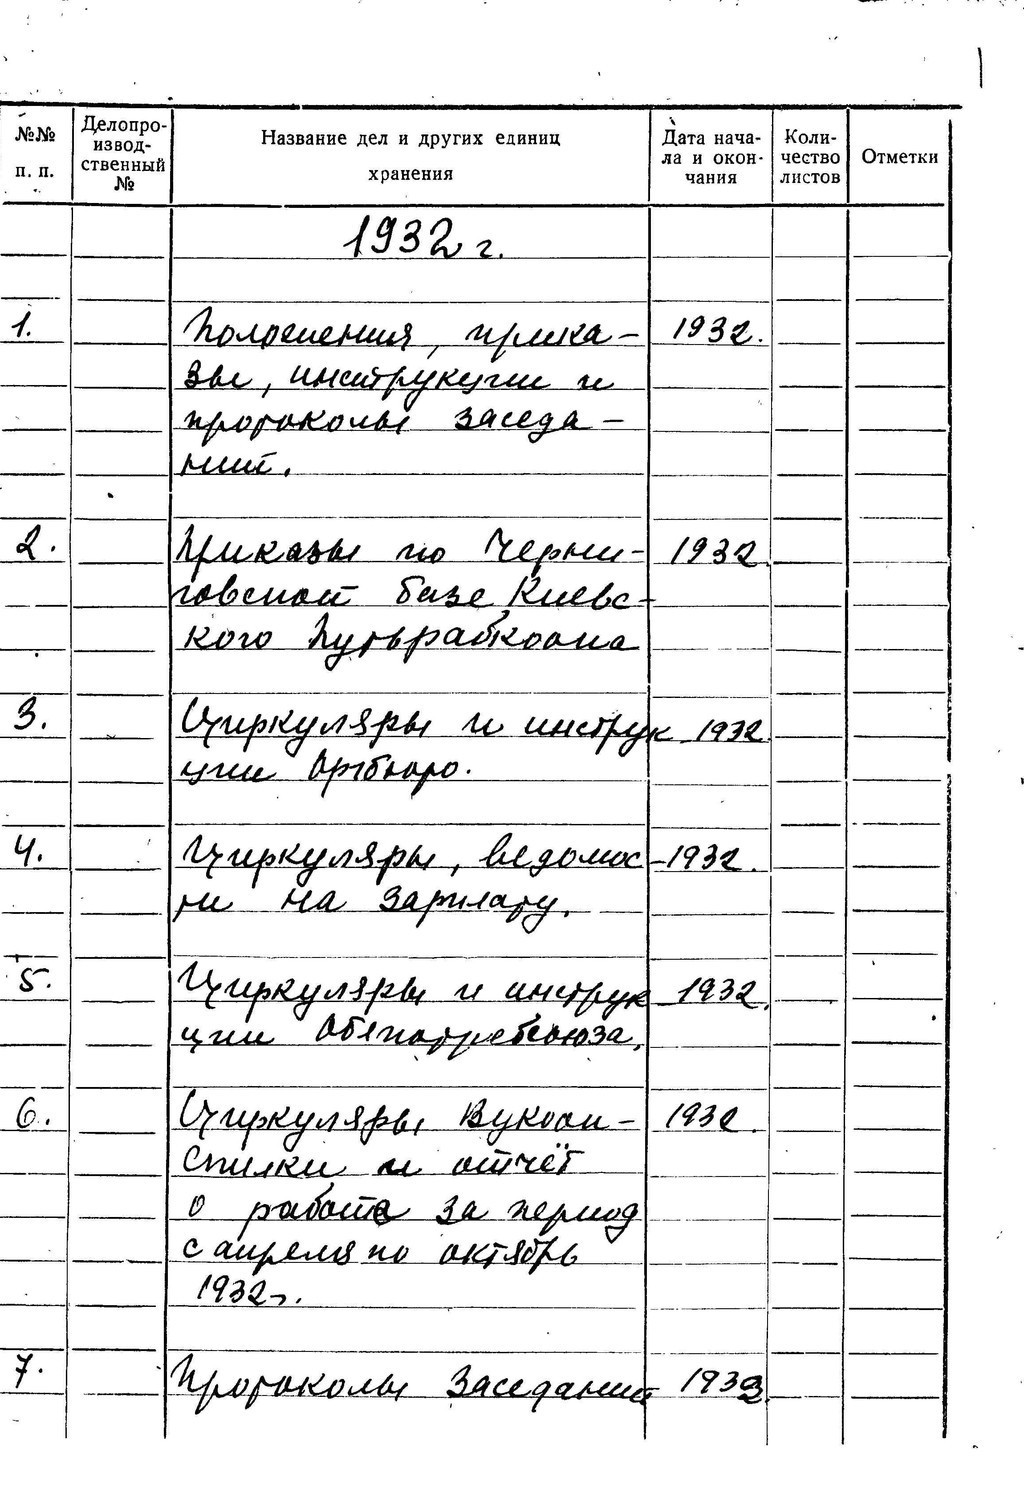 №№ п. п.
Делопро-
извод-
ственный
№
Название дел и других единиц
хранения
Дата нача-
ла и окон-
чания
Коли-
чество
листов
Отметки
1932 г.
1. Положения, прика- 1932.
зы, инструкции и
протоколы заседа-
ний.
2. Приказы по Черни- 1932
говской базе Киевс-
кого Путьрабкоопа
3. Циркуляры и инструк 1932
ции Оргбюро.
4. Циркуляры, ведомос- 1932.
ти на зарплату.
5. Циркуляры и инструк 1932.
ции Облпотребсоюза.
6. Циркуляры Вукооп- 1932.
спилки и отчёт
о работе за период
с апреля по октябрь
1932г.
7. Протоколы заседаний 1932.